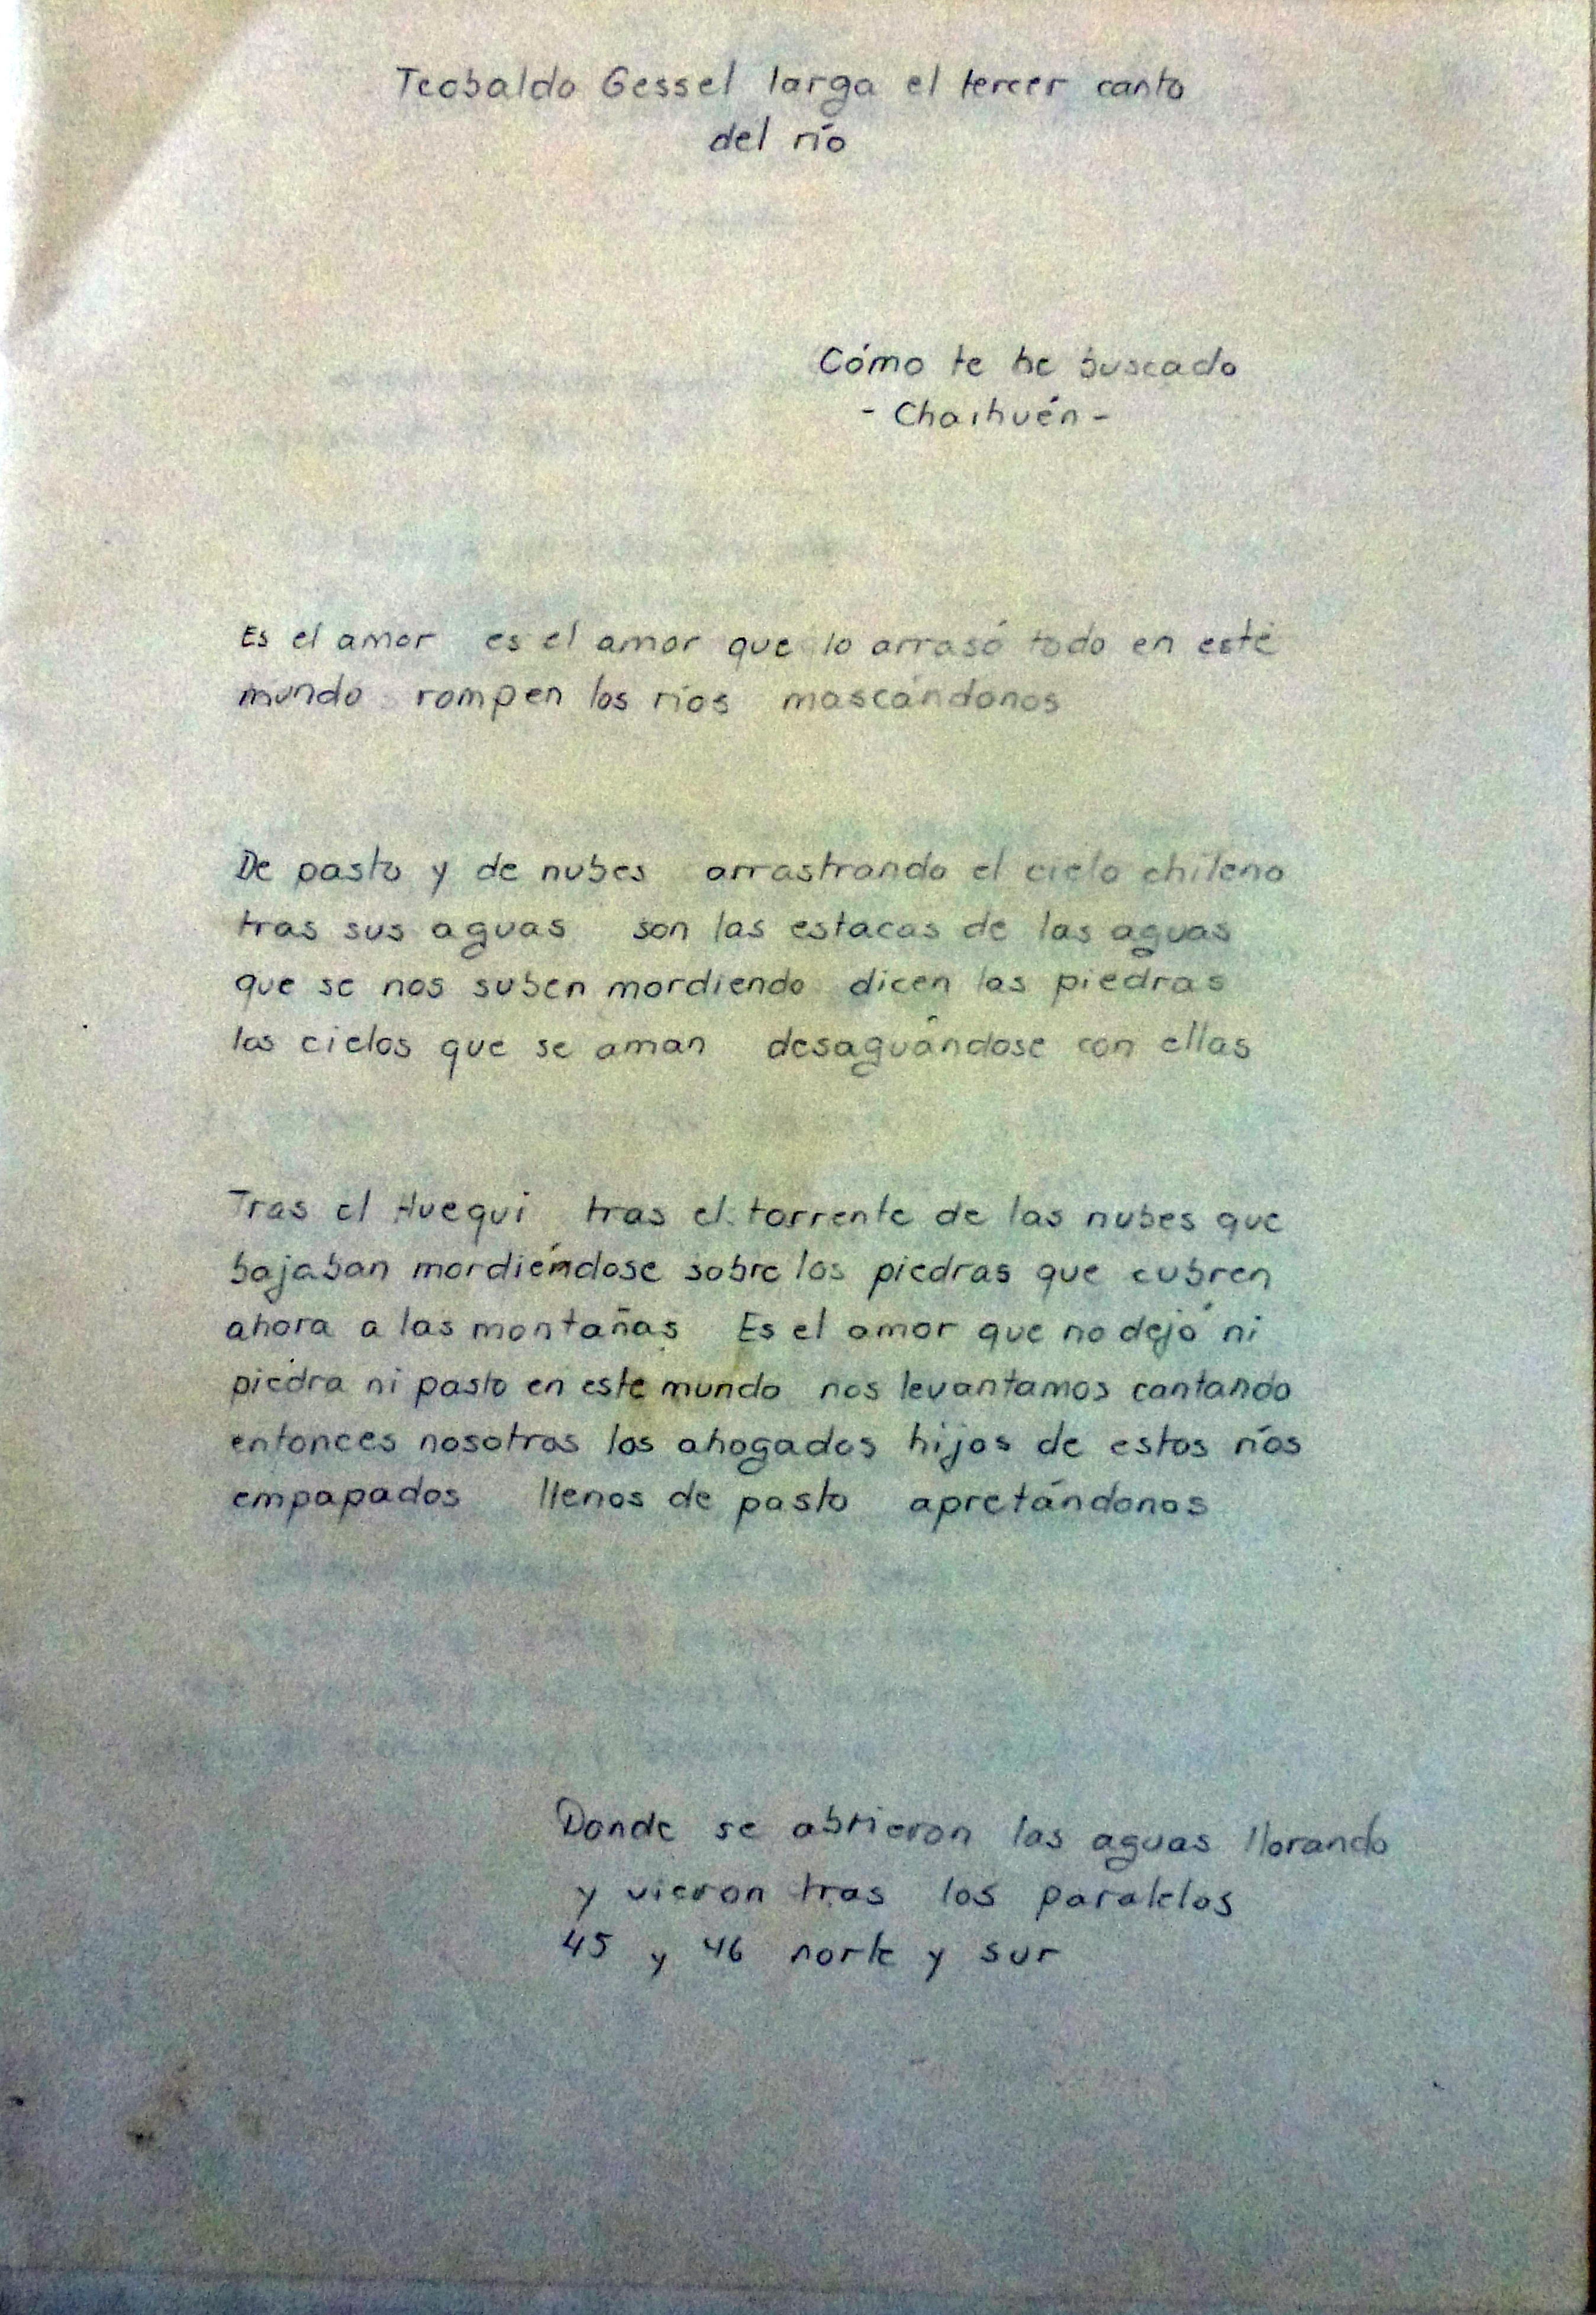 Teobaldo Gessel larga el tercer canto
del río
Cómo te he buscado
- Chaihuén -
Es el amor es el amor que lo arrasó todo en este
mundo rompen los ríos mascándonos
De pasto y de nubes arrastrando el cielo chileno
tras sus aguas son las estacas de las aguas
que se nos suben mordiendo dicen las piedras
los cielos que se aman desaguándose con ellas
Tras el Huequi tras el torrente de las nubes que
bajaban mordiéndose sobre las piedras que cubren
ahora a las montañas Es el amor que no dejó ni
piedra ni pasto en este mundo nos levantamos cantando
entonces nosotros los ahogados hijos de estos ríos
empapados llenos de pasto apretándonos
Donde se abrieron las aguas llorando
y vieron tras los paralelos
45 y 46 norte y sur